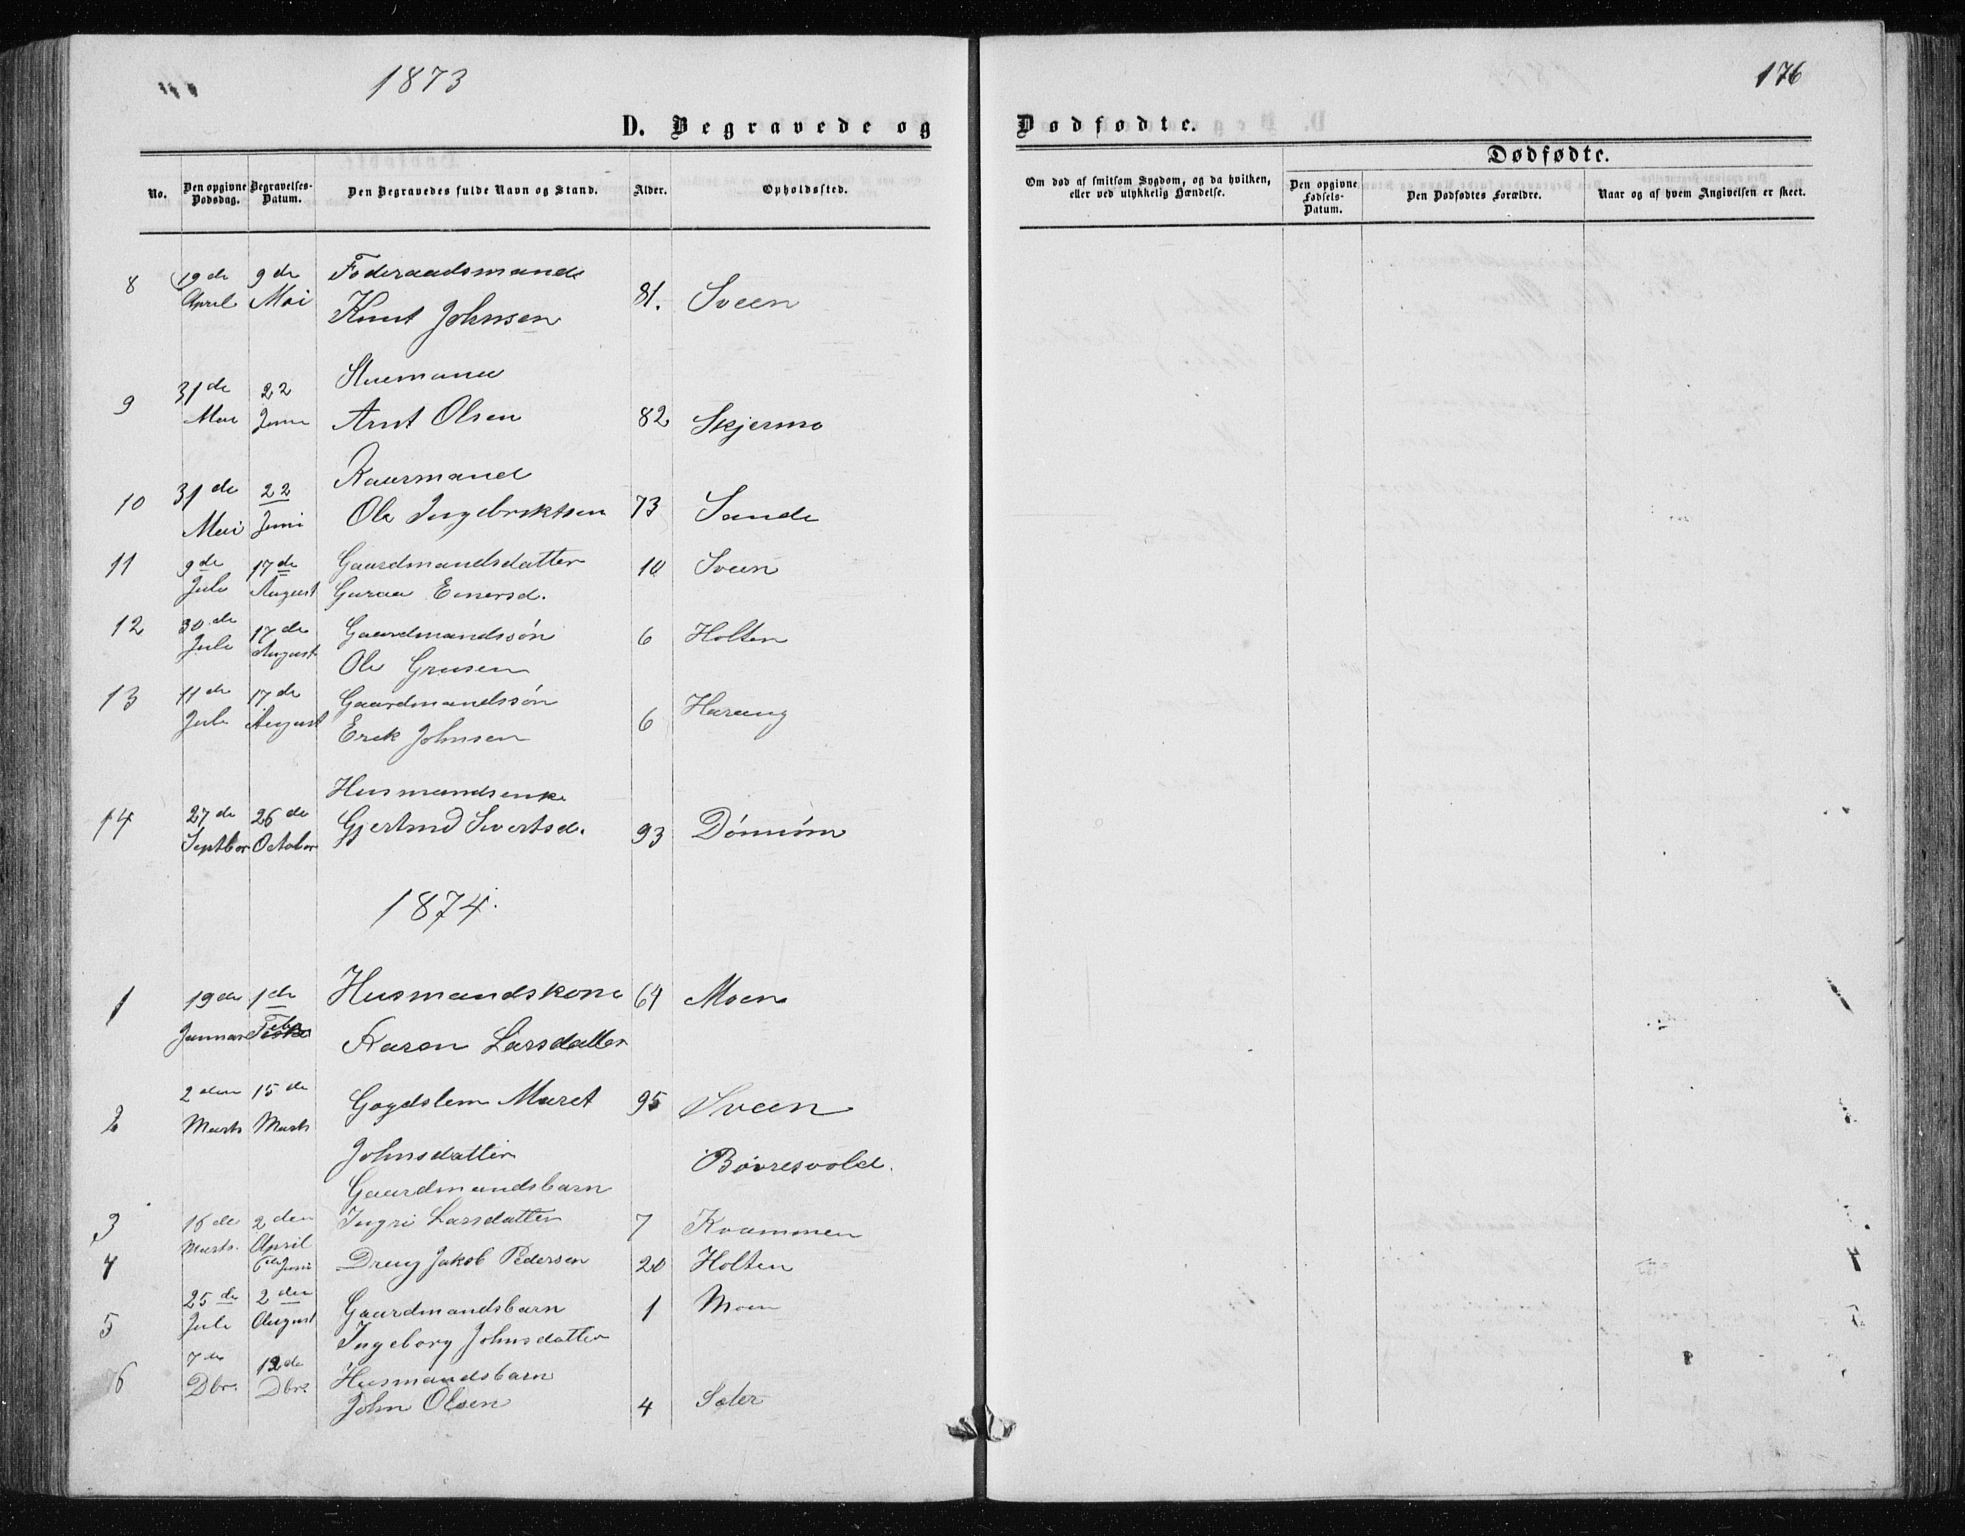 1873
176
D. Begravede og
Dødfødte.
Dødfødte.
No.
Den opgivne Dødsdag.
Begravelses-Datum.
Den Begravedes fulde Navn og Stand.
Alder.
Opholdssted.
Om død af smitsom Sygdom, og da hvilken, eller ved ulykkelig Hændelse.
Den opgivne Fødsels-Datum.
Den Dødfødtes Forældre.
Naar og af hvem Angivelsen er skeet.
8 19de 9de Føderaadsmand
April Mai Knut Johnsen 81. Sveen
9 31de 22
Mai Juni Arnt Olsen 82 Skjermo
10 31de 22 Kaarmand
Mai Juni Ole Ingebriktsen 73 Sande
11 9de 17de Gaardmandsdatter 10 Sveen
Juli August Guraa Einersd.
12 30de 17de Gaardmandssøn 6 Holten
Juli August Ole
13 11de 17de Gaardmandssøn Harang
Juli August Erik Johnsen 6
Husmandsenke
14 27de 26de Gjertrud Sivertsd. 93
Septbor Octobor
1874.
1 19de 1de Husmandskone 64 Moen
Januar Feb Karen Larsdatter
2 2den 15de Maret 95 Sveen
Marts Marts
Johnsdatter Bøvresvold.
Gaardmandsbarn
3 16de 2den Ingri Larsdatter 7 Kvammen
Marts. April
4 6te Juni Dreng Jakob Pedersen 20 Holten
25de 2den Gaardmandsbarn 1 Moen
5 Juli August Ingeborg Johnsdatter
7de 12de Husmandsbarn
6 Dbr. Dbr. John Olsen 4 Sæter